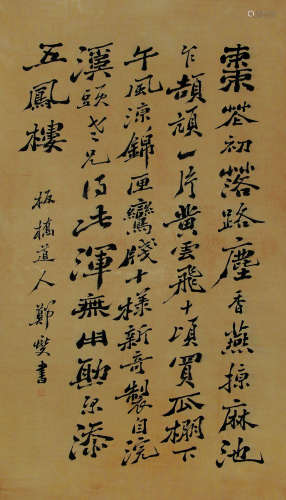 棗花初落路塵香燕掠麻池
乍頡頏一片黃雲飛十頃買瓜棚下
午風涼錦匣鸞牋十樣新奇製自浣
溪頭老兄得此渾無用助尔添
五鳳樓
板橋道人鄭燮書